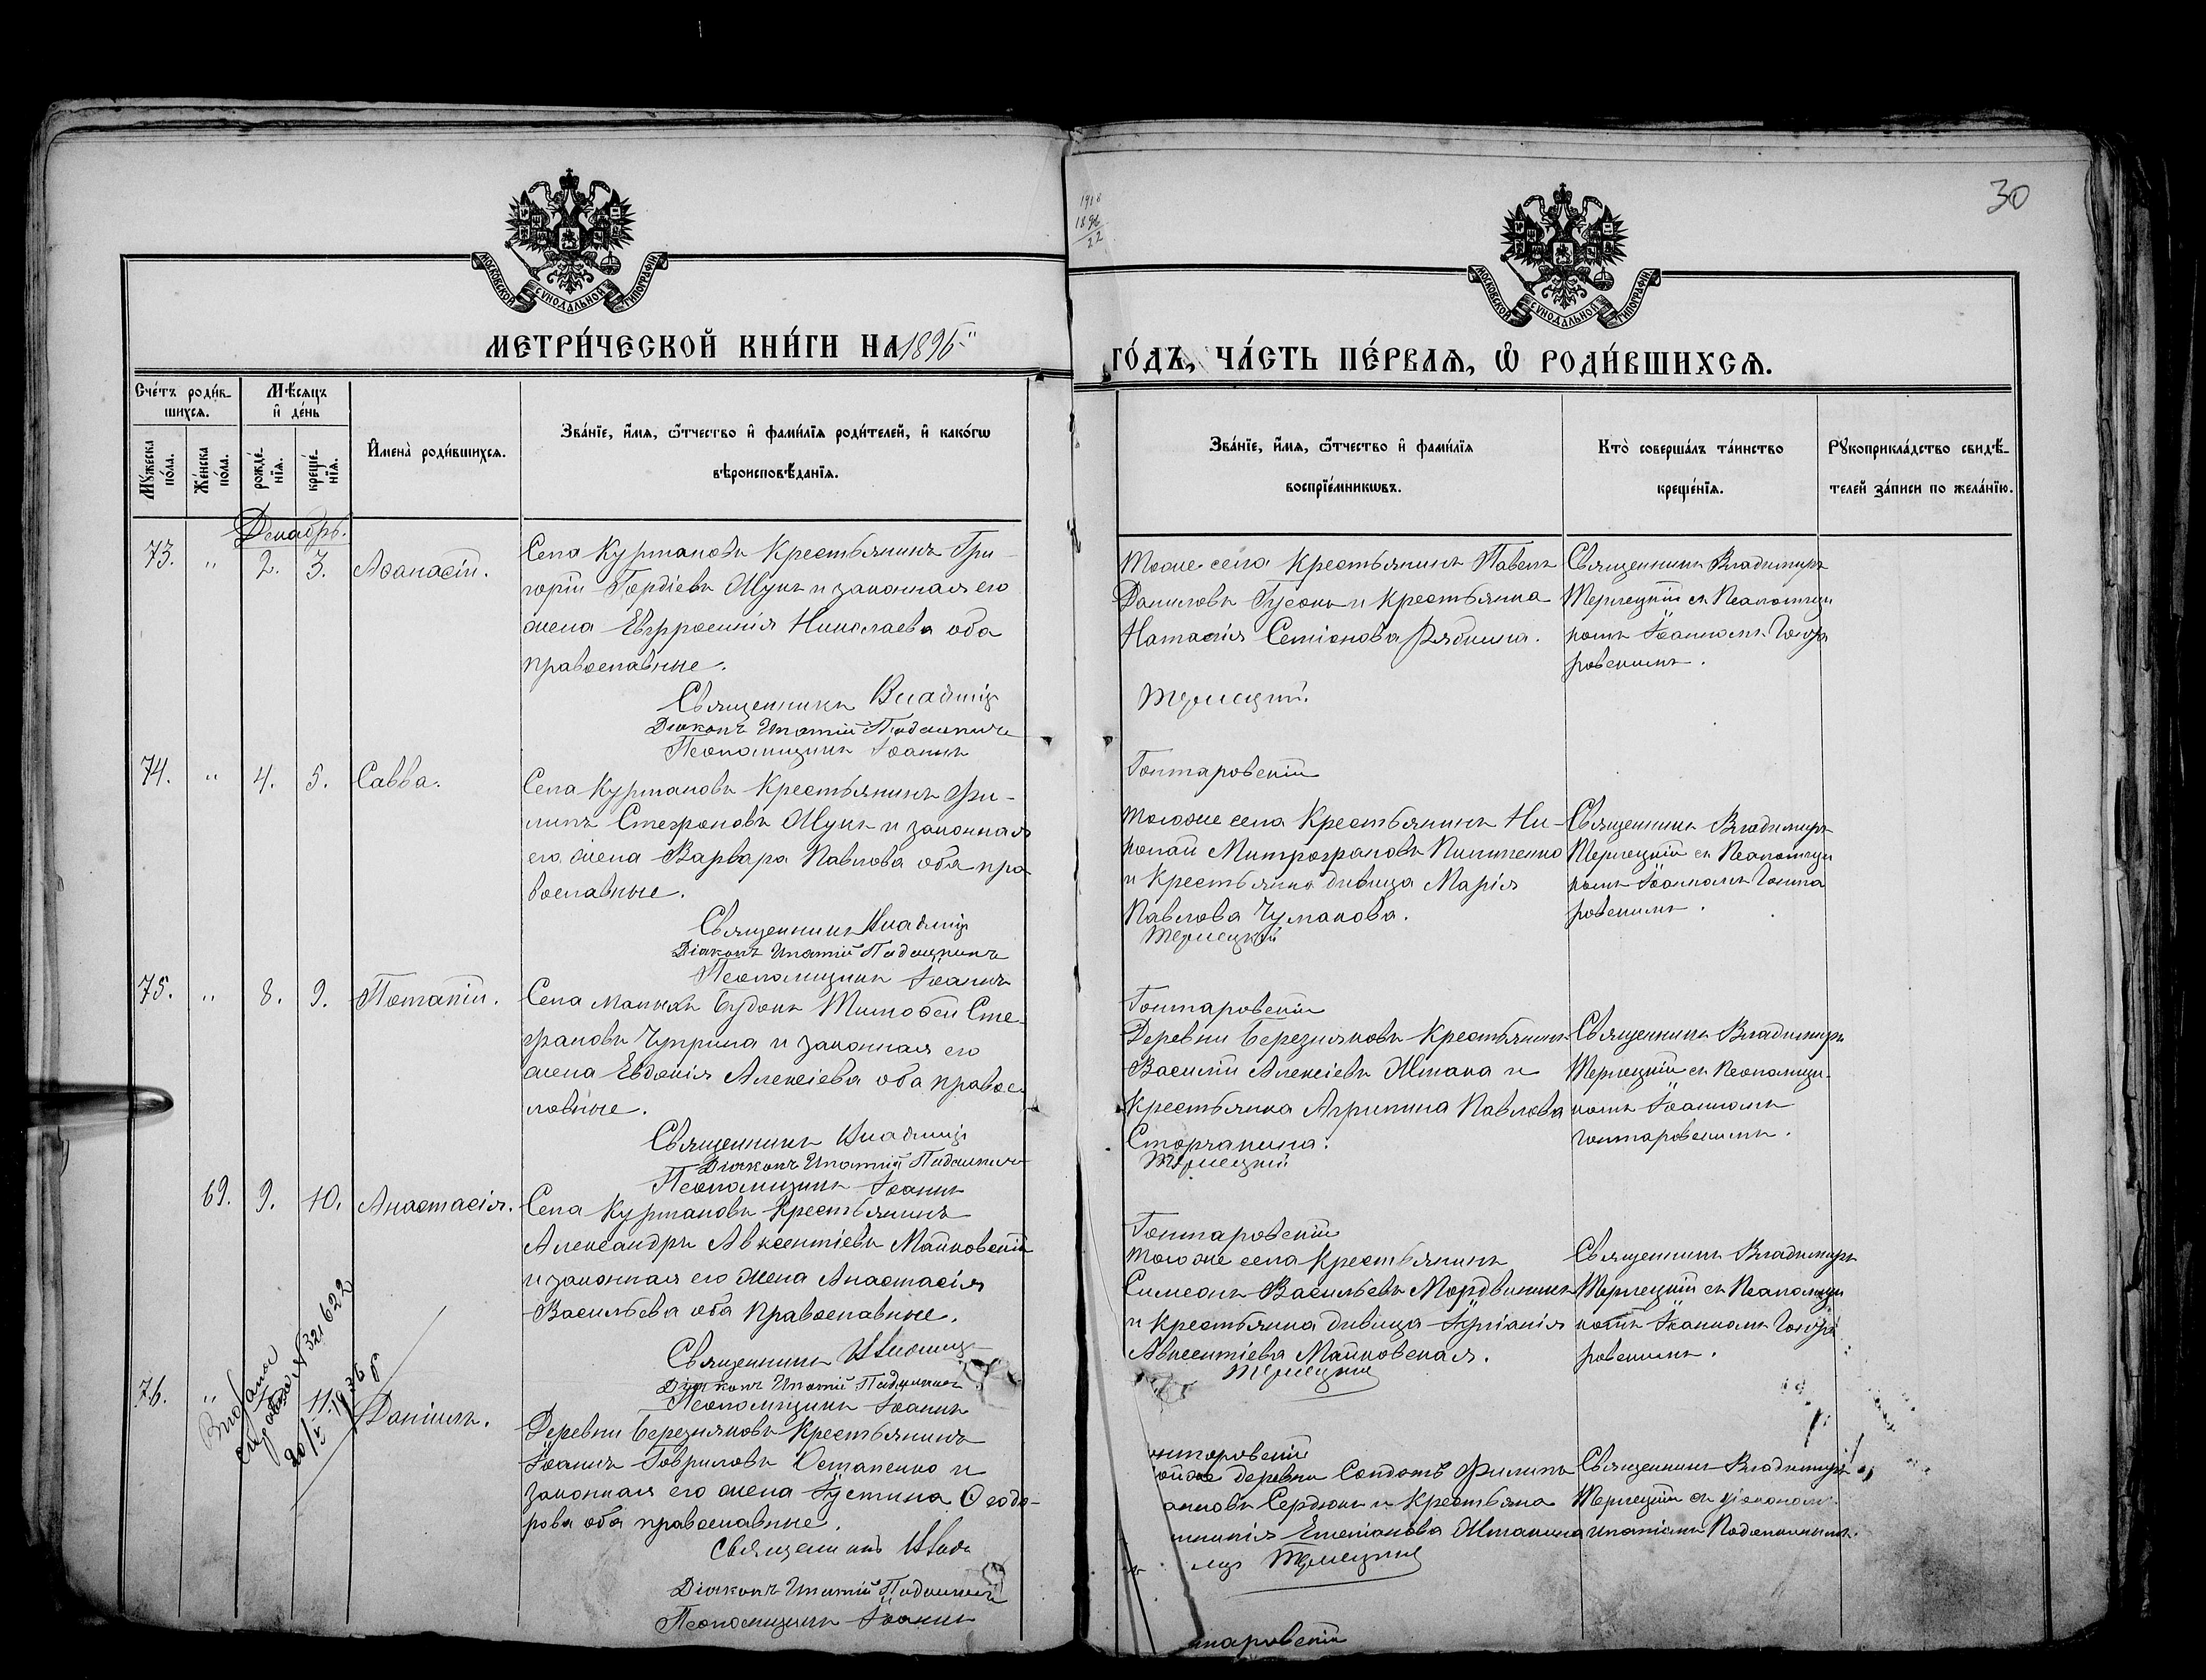 30
МОСКОВСКОЙ СѴНОДАЛЬНОЙ ТИПОГРАФІИ
МОСКОВСКОЙ СѴНОДАЛЬНОЙ ТИПОГРАФІИ
МЕТРИ́ЧЕСКОЙ КНИ́ГИ НА 1896
ГО́ДЪ, ЧА́СТЬ ПЕ́РВАѦ, Ѽ РОДИ́ВШИХСѦ.
Сче́тъ роди́в-
шихсѧ.
Мѣ́сѧцъ
и҆ де́нь
Мꙋ́жеска по́ла.
Же́нска по́ла.
рожде́-
нїѧ.
креще́-
нїѧ.
И҆мена̀ роди́вшихсѧ.
Зва́нїе, и҆́мѧ, ѻ҆́тчество и҆ фами́лїѧ роди́телей, и҆ како́гѡ
вѣроисповѣ́данїѧ.
Зва́нїе, и҆́мѧ, ѻ҆́тчество и҆ фами́лїѧ
воспрїе́мникѡвъ.
Кто̀ соверша́лъ та́инство
креще́нїѧ.
Рꙋкоприкла́дство свидѣ́-
телей за́писи по жела́нїю.
Декабрь.
73. " 2. 3. Аѳанасій.
Села Курмановъ Крестьянинъ Гри-
горій Гордіевъ Жукъ и законная его
жена Евфросинія Николаева оба
православные.
Священникъ Владимір
Діаконъ Ипатій
Псаломщикъ Іоаннъ
Тогоже села Крестьянинъ Павелъ
Даниловъ Гусакъ и Крестьянка
Наталія Семіонова
Терлецкій.
Гонтаровскій
Священникъ Владимиръ
Терлецкій съ Псаломщи
комъ Іоанномъ Гонта
ровскимъ.
74. " 4. 5. Савва.
Села Курмановъ Крестьянинъ Фи-
липъ Стефановъ Жукъ и законная
его жена Варвара Павлова оба пра
вославные.
Священникъ Владимір
Діаконъ Ипатій
Псаломщикъ Іоаннъ
Тогоже села Крестьянинъ Ни-
колай Митрофановъ Пилипенко
и Крестьянка дѣвица Марія
Павлова Чумакова.
Терлецкій
Гонтаровскій
Священникъ Владимиръ
Терлецкій съ Псаломщи
комъ Іоанномъ Гонта
ровскимъ.
75. " 8. 9. Потапій.
Села Малыхъ Будокъ Тимоѳей Сте-
фановъ Чуприна и законная его
жена Евдокія Алексіева оба правос
лавные.
Священникъ Владимір
Діаконъ Ипатій
Псаломщикъ Іоаннъ
Деревни Березняковъ Крестьянинъ
Василій Алексіевъ Жмака и
Крестьянка Агрипина Павлова
Терлецкій
Гонтаровскій
Священникъ Владимиръ
Терлецкій съ Псаломщи-
комъ Іоанномъ
Гонтаровскимъ.
69. 9. 10. Анастасія.
Села Курмановъ Крестьянинъ
Александръ Авксентіевъ Майковскій
и законная его жена Анастасія
Васильева оба Православные.
Священникъ
Діаконъ Ипатій
Псаломщикъ Іоаннъ
Тогоже села Крестьянинъ
Симеонъ Васильевъ Мордвининъ
и Крестьянка дѣвица Іуліанія
Авксентіева Майковская.
Терлецкій
Священникъ Владимиръ
Терлецкій съ Псаломщи
комъ Іоанномъ Гонта
ровскимъ.
76. " 11. Даніилъ.
Выдана
N 321622
Деревни Березняковъ Крестьянинъ
Іоаннъ Гавриловъ Остапенко и
законная его жена Іустина Ѳеодо-
рова оба православные.
Священникъ Влади
Діаконъ Ипатій
Псаломщикъ Іоаннъ
нтаровскій
деревни Солдатъ Филипъ
Сердюкъ и Крестьянка
Терлецкій
нтаровскій
Священникъ Владимиръ
Терлецкій съ